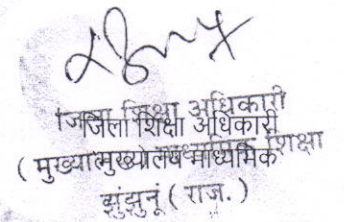 जिला शिक्षा अधिकारी
जिला शिक्षा अधिकारी
( मुख्यालय माध्यमिक शिक्षा
झुंझुनूं ( राज. )